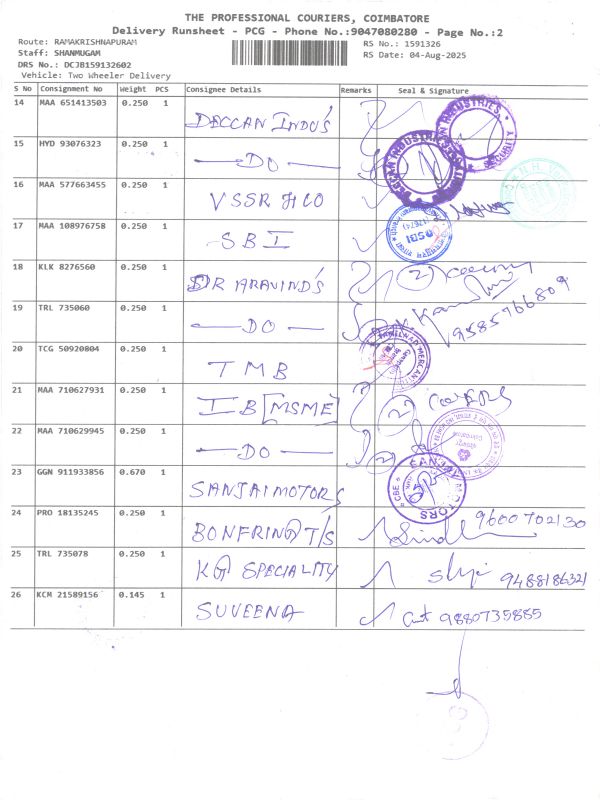 THE PROFESSIONAL COURIERS, COIMBATORE
Delivery Runsheet - PCG - Phone No.:9047080280 - Page No.:2
Route: RAMAKRISHNAPURAM
RS No.: 1591326
Staff: SHANMUGAM
RS Date: 04-Aug-2025
DRS No.: DCJB159132602
Vehicle: Two Wheeler Delivery
S No Consignment No Weight PCS Consignee Details Remarks Seal & Signature
14 MAA 651413503 0.250 1 DECCAN INDU'S
15 HYD 93076323 0.250 1 —DO—
16 MAA 577663455 0.250 1 VSSR &CO
17 MAA 108976758 0.250 1 SBI
18 KLK 8276560 0.250 1 DR ARAVIND'S (2)
9585766809
19 TRL 735060 0.250 1 —DO—
20 TCG 50920804 0.250 1 TMB
21 MAA 710627931 0.250 1 IB [MSME] (2)
22 MAA 710629945 0.250 1 —DO—
23 GGN 911933856 0.670 1 SANJAI MOTORS
24 PRO 18135245 0.250 1 BONFRING T/S 9600702130
25 TRL 735078 0.250 1 KG SPECIALITY 9488186321
26 KCM 21589156 0.145 1 SUVEENA 9880735885